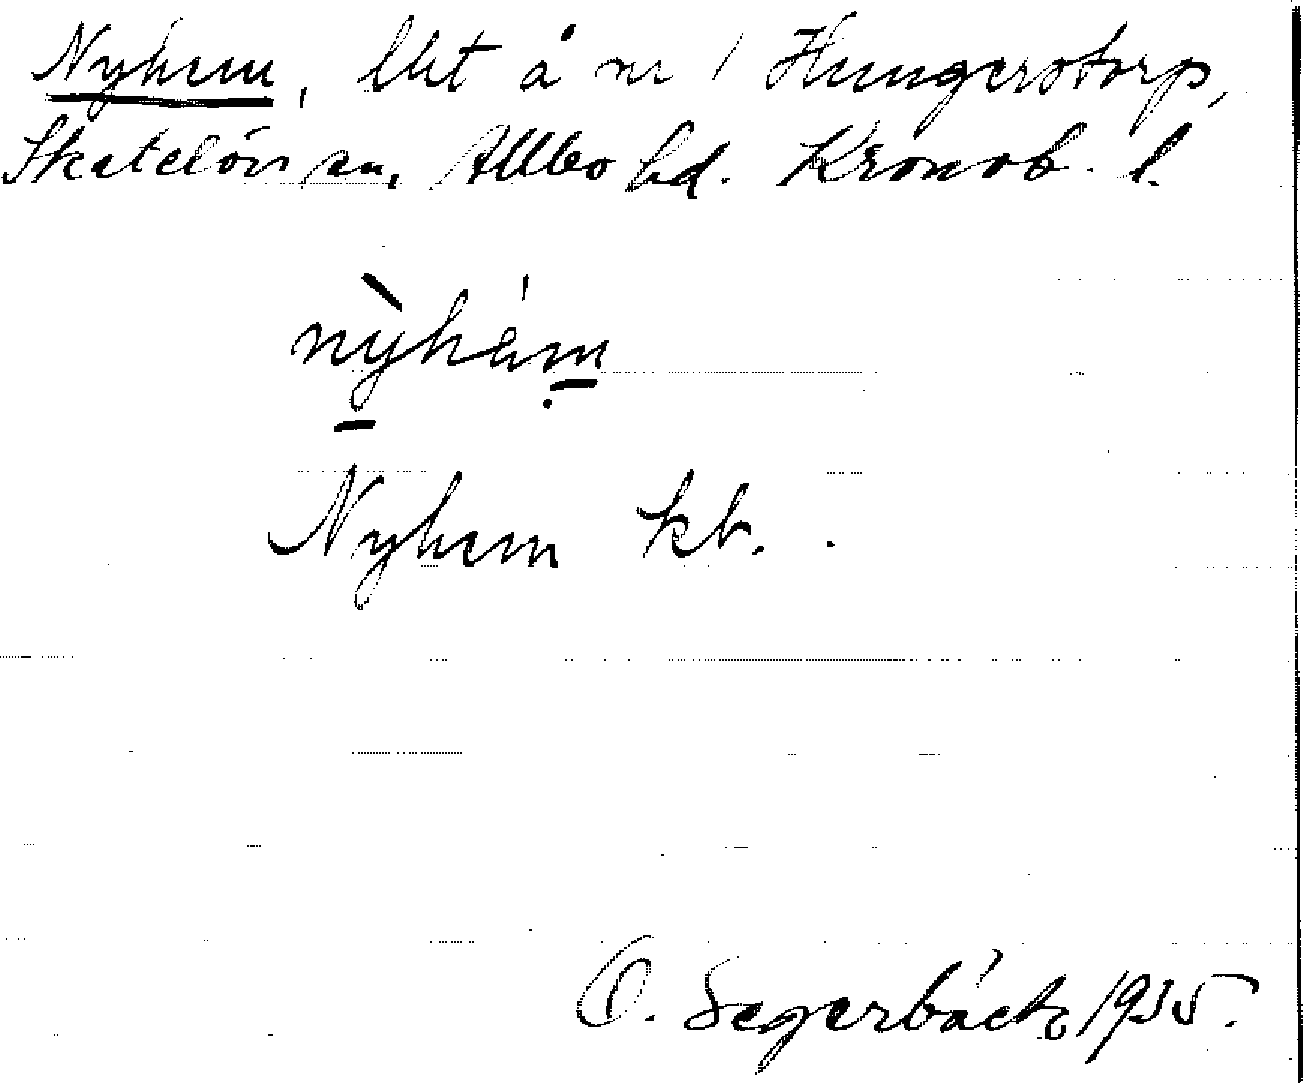 Nyhem, lht å nr 1 Hungerstorp,
Skatelövs sn, Allbo hd. Kronob. l.
nỳhém
Nyhem kb.
O. Segerbäck 1935.